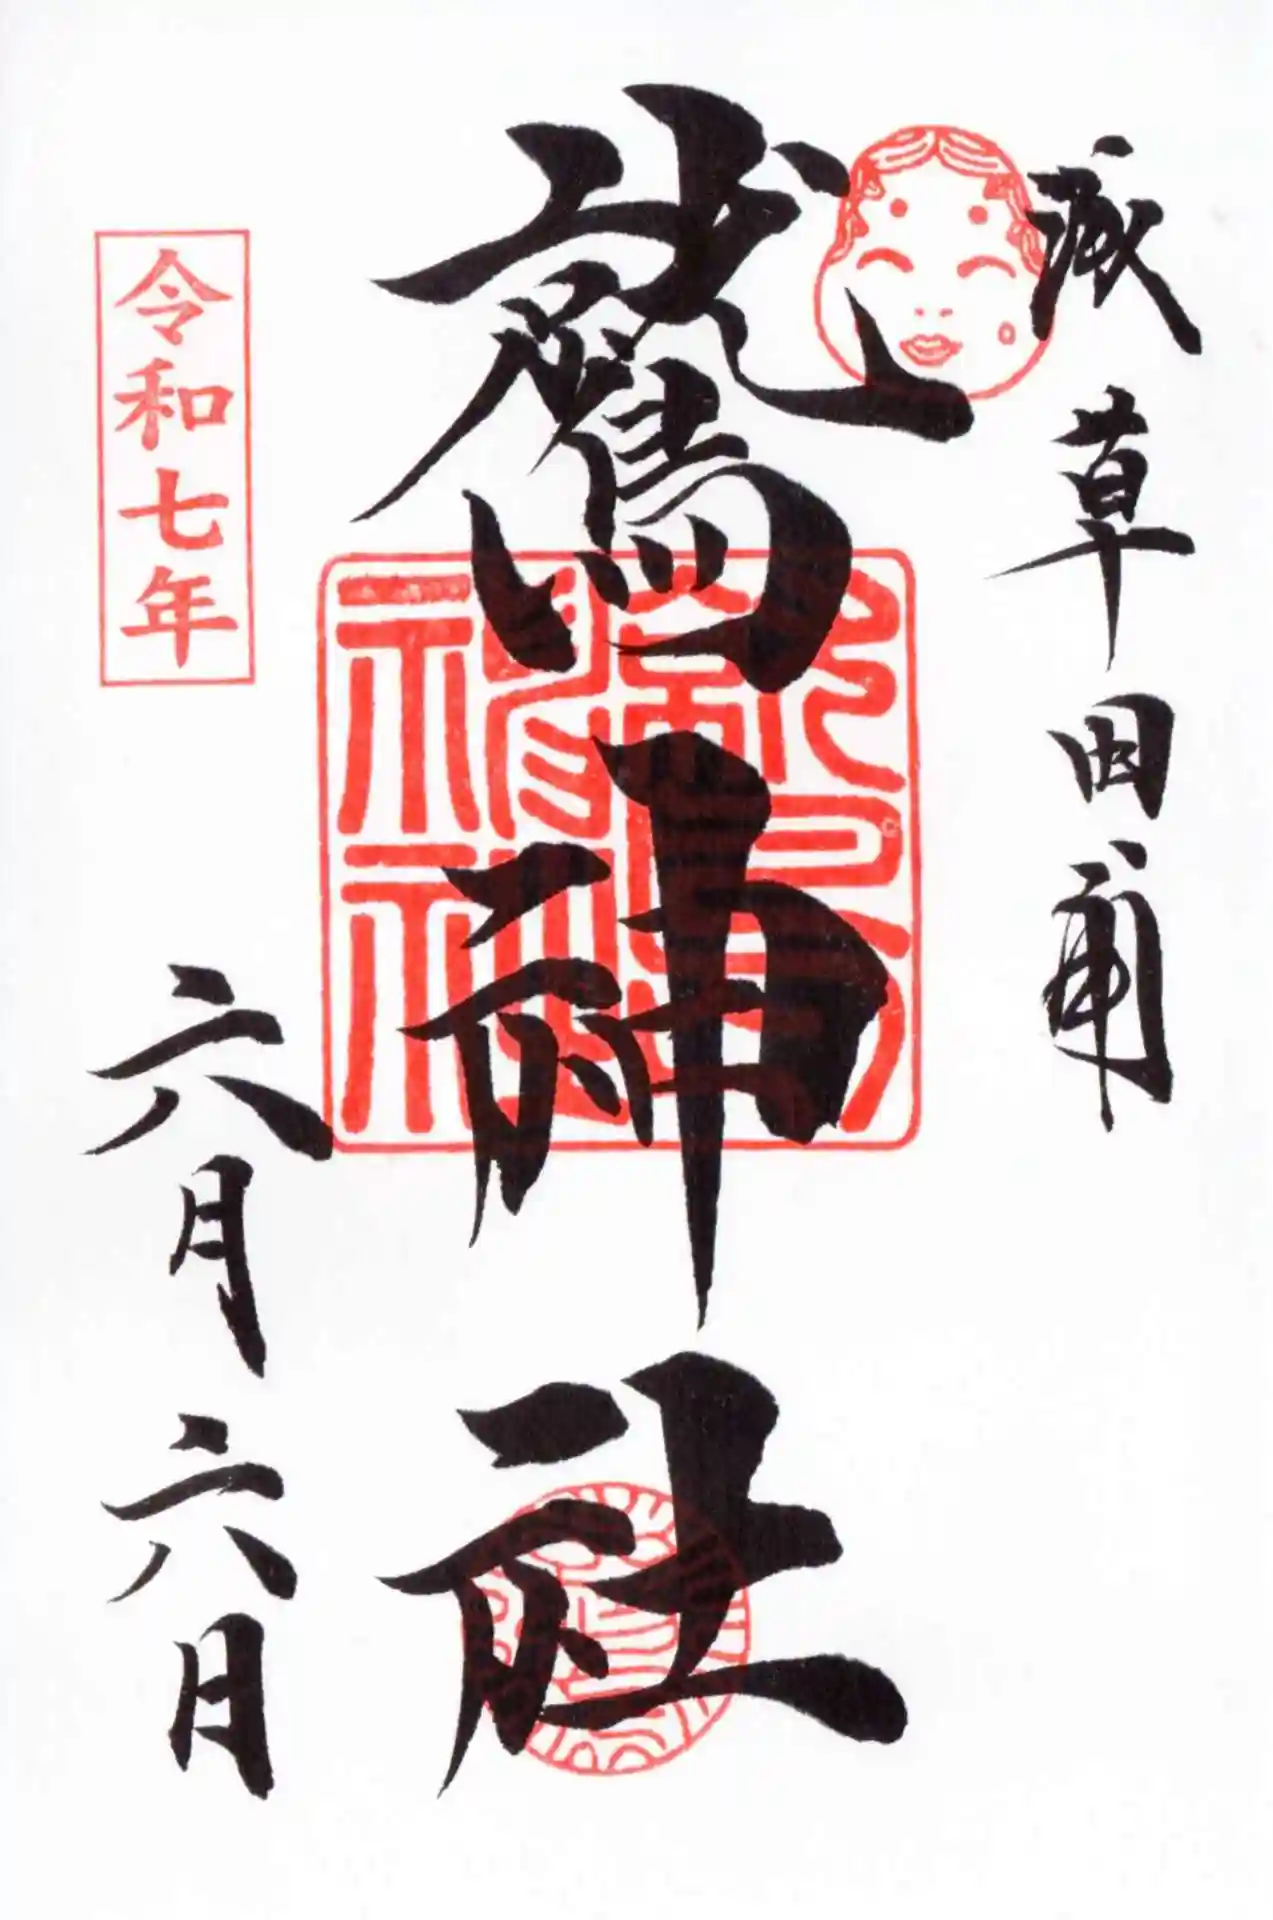 浅草田甫
鷲神社
鷲神社
令和七年
六月六日